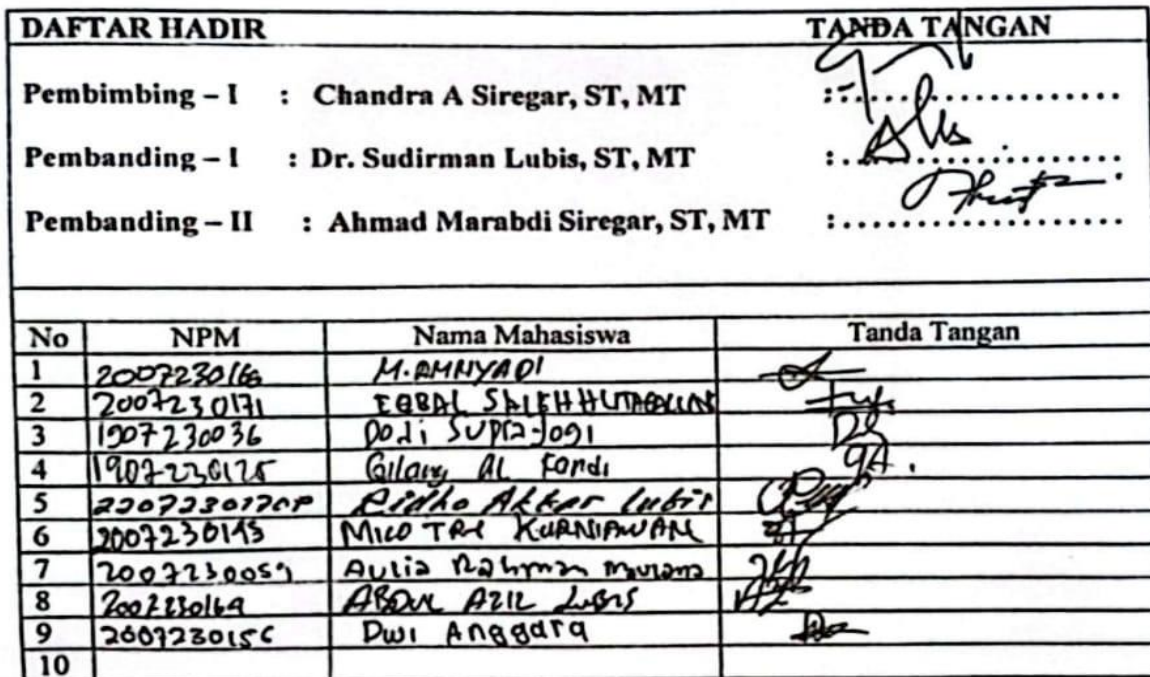 DAFTAR HADIR TANDA TANGAN
Pembimbing – I : Chandra A Siregar, ST, MT :....................
Pembanding – I : Dr. Sudirman Lubis, ST, MT :....................
Pembanding – II : Ahmad Marabdi Siregar, ST, MT :....................
No NPM Nama Mahasiswa Tanda Tangan
1 M. AMRYADI
2 2007230171 EQBAL SALEH HUTABALIAN
3 1907230036 Dodi Supra-Jogi
4 1907230125 Gilang AL Fandi
5 Ridho Akbar Lubis
6 2007230143 MICO TRI KURNIAWAN
7 2007230059 Aulia Rahman Maulana
8 2007230169 ABDUL AZIZ LUBIS
9 2007230156 Dwi Anggara
10